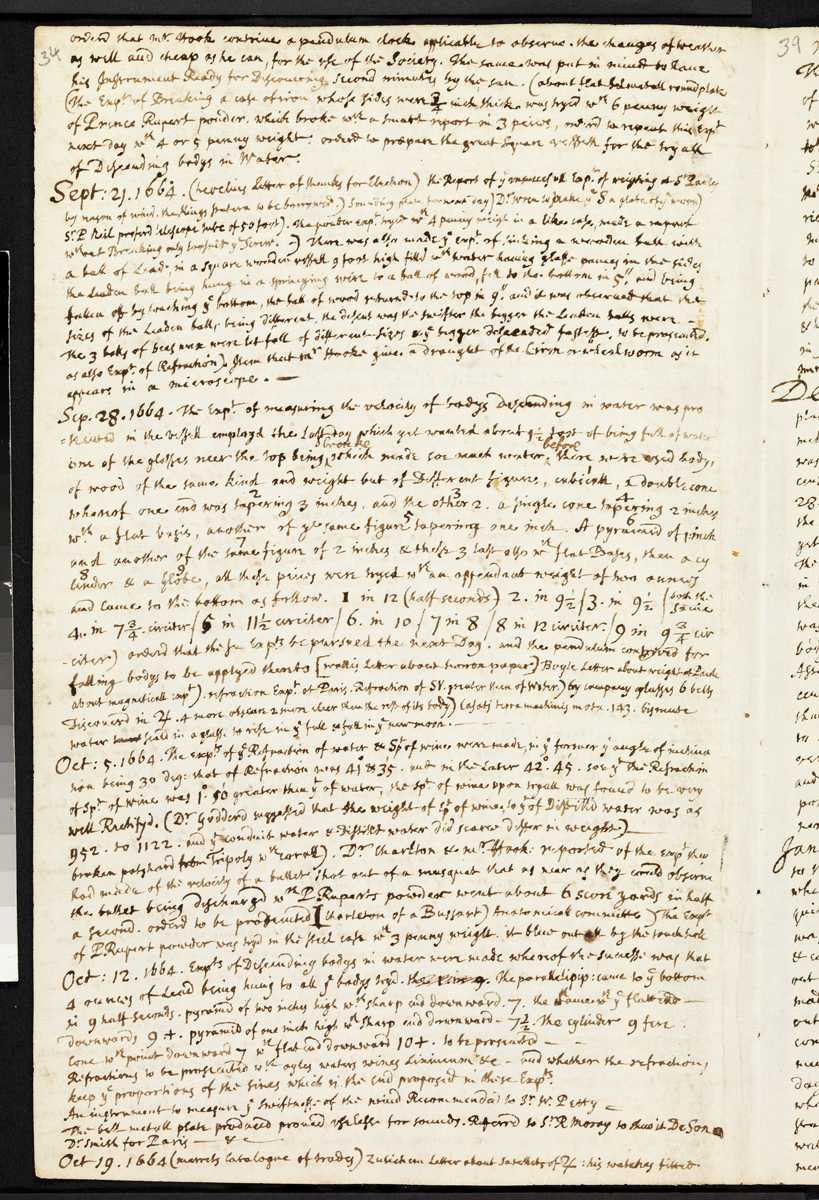 34
ordered that Mr. Hook contrive a pendulum clock applicable to observe the changes of weather
as well and cheap as he can, for the use of the Society. The same was put in mind to have
his Instrument Ready for Discovering second minutes by the sun. (about flat bel metall round plate
(The Expt. of Breaking a case of iron whose sides were 3/4 inch thick was tryd wth 6 penny weight
of Prince Rupert powder. which broke wth a smart report in 3 peices, orderd to repeat this Expt
next day wth 4 or 5 penny weight. orderd to prepare the great Square vessell for the tryall
of Descending bodys in Water.
Sept: 21. 1664. (hevelius Letter of thanks for Election) the Report of ye Expt. of weighing at St Pauls
by reason of wind. the Kings to be borrowed.)
Sr. P. Neil proferd telescope tube of 50 foot). The powder expt. tryed wth 4 penny weigh in a like case, made a report
wthout Breaking only ye Screw. -) There was also made ye expt. of sinking a wooden ball with
a ball of Lead. in a square wooden vessell 9 foot high filld wth water having glasse panes in the sides
the Leaden ball being hung in a springing wire to a ball of wood, fell to the bottom in 5" and being
taken off by touching ye bottom, the ball of wood returnd to the top in 9". and it was observed that the
sizes of the Leaden balls being different, the descent was the swifter the bigger the Leaden balls were. -
The 3 balls of bees wax were let fall of different sizes & ye bigger descended fastest. to be prosecuted.
as also Expt. of Refraction). Item that Mr Hooke give a draught of the worm as it
appears in a microscope. -
Sep. 28. 1664. The Expt. of measuring the velocity of bodys Descending in water was pro
=secuted in the vessell employd the last day which yet wanted about 9 1/2 foot of being full of water
one of the glasses near the top being broake, which made soe much water. before there were used bodys
of wood of the same kind and weight but of Different figure, 1 cubicall, a double cone
whereof one end was 2 tapering 3 inches, and the other 3 2. a single cone 4 tapering 2 inches
wth a flat basis, another of ye same figure 5 tapering one inch. A pyramid 6 of 1 inch
and another of the same 7 figure of 2 inches & these 3 last also wth flat Bases, then a cy
8 linder & a 9 Globe, all these peices were tryed wth an appendant weight of two ounces
and came to the bottom as follow. 1 in 12 (half seconds) 2. in 9 1/2 / 3. in 9 1/2 / both the same
4. in 7 3/4 circiter / 5 in 11 1/2 circiter / 6. in 10 / 7 in 8 / 8 in 12 circiter / 9 in 9 3/4 cir
-citer) orderd that these Expts be pursued the next Day. and the pendulum contrived for
falling bodys to be applyed thereto [wallis Letter about paper) Boyle Letter about weight at Pauls
about magneticall expt). refraction Expt. at Paris. Refraction of SV. greater then of Water.) by company glasses 6 belts
Discoverd in ♃. 4 more obscure 2 more clear then the rest of its body) (Casati terra machinis mota. 143. bismute
water seald in a glasse. to rise in ye full & fall in ye new moon. -
Oct: 5. 1664. The expt. of ye Refraction of water & Sp. of wine were made, in ye former ye angle of inclina
tion being 30 deg: that of Refraction was 41° & 35. and in the Later 42°. 45. soe yt the Refraction
of Spt. of wine was 1°. 50 greater then yt of water, the Spt. of wine upon tryall was found to be very
well Rectifyd. (Dr. Godderd suggested that the weight of Spt. of wine to yt of Distilld water was as
952. to 1122. and yt conduit water & Distilled water did scarce differ in weight) -
broken potshard from Tripoly wth corall). Dr. Charlton & Mr. Hook reported of the Expt. they
had made of the velocity of a bullet shot out of a musquet that as near as they could observe
the bullet being discharged wth P. Ruperts powder went about 6 score yards in half
a second. orderd to be prosecuted [Charleton of a Bussart) Anatomical committee) The Expt
of P. Rupert powder was tryd in the steel case wth 3 penny weight. it blew out all by the touch hole
Oct: 12. 1664. Expts of Descending bodys in water were made whereof the successe was that
4 ounces of Lead being hung to all ye bodys tryd. The parallelipip: came to ye bottom
in 9 half seconds. pyramid of two inches high wth sharp end downward. 7. the same wth ye flatt end -
downwards 9 +. pyramid of one inch high wth sharp end downward - 7 1/2. The cylinder 9 fere.
Cone wth point downward 7 wth flat end downward 10 +. to be prosecuted - -
Refractions to be prosecuted wth oyles waters wines &c - and whether the refractions
keep ye proportions of the sines which is the end proposed in these Expts.
An instrument to measure ye Swiftnesse of the wind Recommended to Sr. W. Petty -
The bell metall plate produced proved uselesse for sounds. Referred to Sr. R Moray to shew it De Son
Dr. Smith for Paris - & -
Oct 19. 1664 (merrets Catalogue of trades) Zulichem Letter about Satellits of ♃: his watches fitted
39